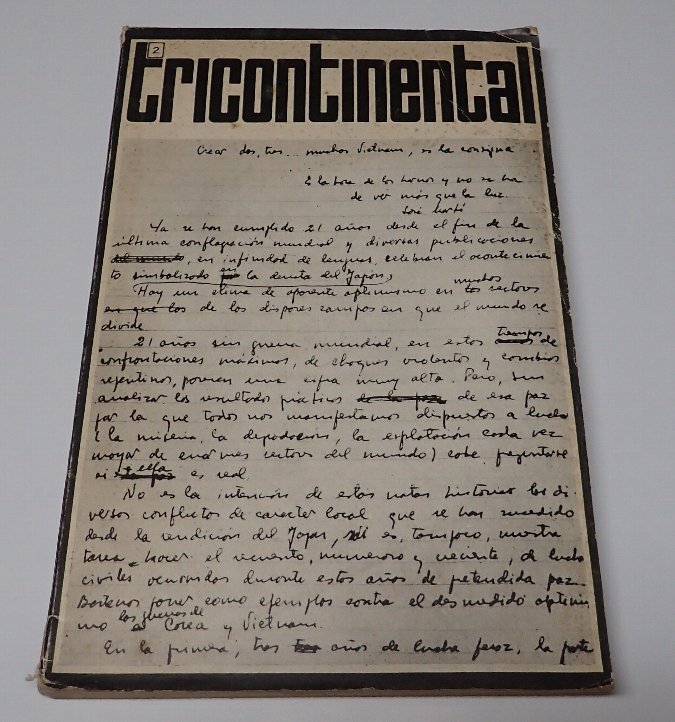 2
tricontinental
Crear dos, tres... muchos Vietnam, es la consigna
Es la hora de los hornos y no se ha
de ver más que la luz.
José Martí
Ya se han cumplido 21 años desde el fin de la
última conflagración mundial y diversas publicaciones
en infinidad de lenguas, celebran el acontecimien
to simbolizado en la derrota del Japón,
Hay un clima de aparente optimismo en muchos sectores
de los dispares campos en que el mundo se
divide
21 años sin guerra mundial, en estos tiempos de
confrontaciones máximas, de choques violentos y cambios
repentinos, parecen una cifra muy alta. Pero, sin
analizar los resultados prácticos de esa paz
por la que todos nos manifestamos dispuestos a luchar
(la miseria, la degradación, la explotación cada vez
mayor de enormes sectores del mundo) cabe preguntarse
si ella es real.
No es la intención de estas notas historiar los di-
versos conflictos de caracter local que se han sucedido
desde la rendición del Japón, no es, tampoco, nuestra
tarea hacer el recuento, numeroso y creciente, de luchas
civiles ocurridas durante estos años de pretendida paz.
Bástenos poner como ejemplos contra el desmedido optimis
mo las guerras de Corea y Vietnam.
En la primera, tras años de lucha feroz, la parte